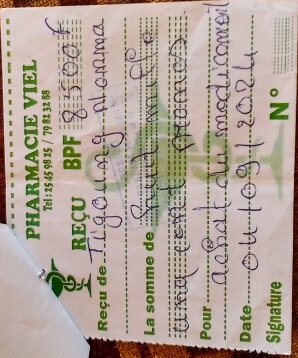 PHARMACIE VIEL
Tel : 25 45 98 25 / 79 82 32 88
REÇU BPF 8500F
Reçu de
La somme de huit mille
cinq cent francs
Pour achat du medicament
Date 04/09/2024
Signature N°